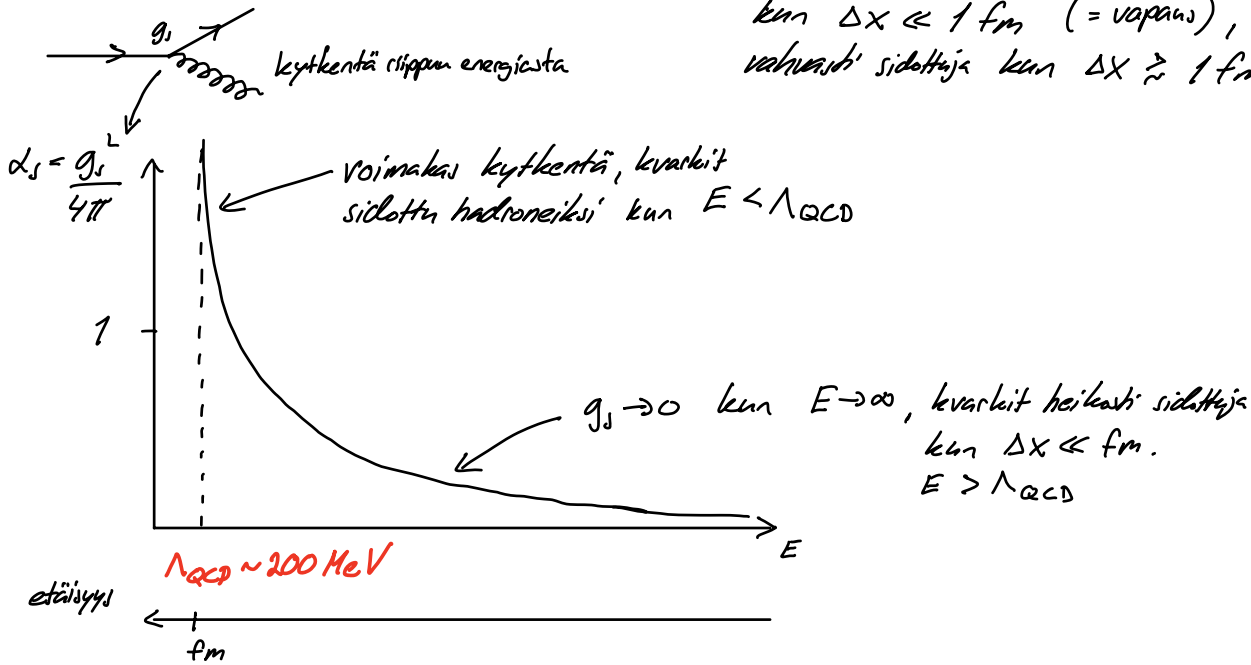 kun Δx ≪ 1 fm (= vapaus),
vahvasti sidottuja kun Δx ≳ 1 fm
g_s
kytkentä riippuu energiasta
α_s = g_s²/4π
voimakas kytkentä, kvarkit
sidottu hadroneiksi kun E < Λ_QCD
1
g_s → 0 kun E → ∞, kvarkit heikosti sidottuja
kun Δx ≪ fm.
E > Λ_QCD
E
Λ_QCD ~ 200 MeV
etäisyys
fm